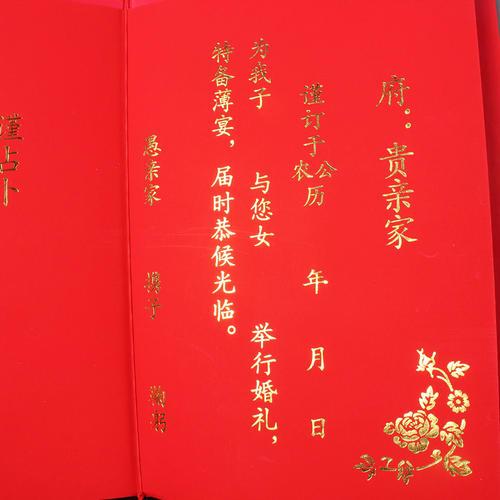 府：贵亲家
谨订于农公历 年 月 日
为我子 与您女 举行婚礼，
特备薄宴，届时恭候光临。
愚亲家 携子 鞠躬
谨占卜